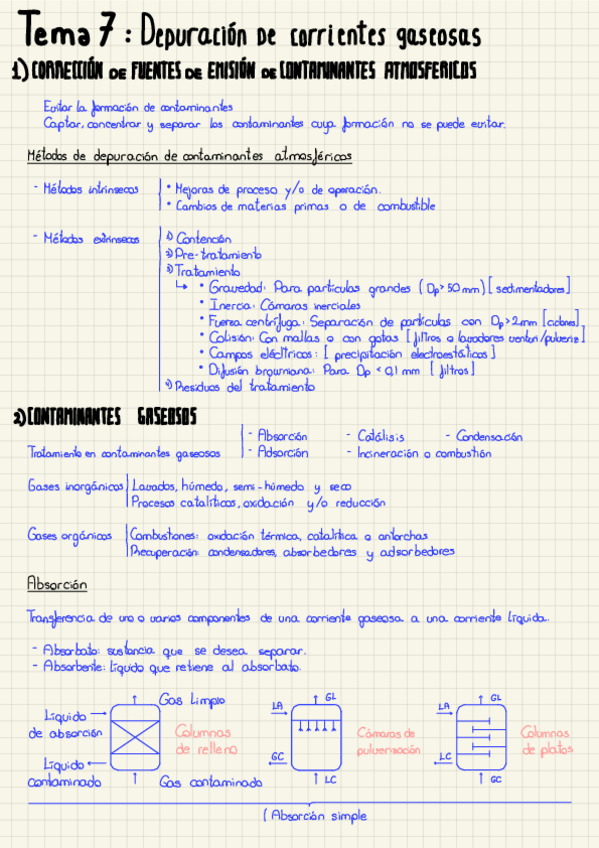 Tema 7: Depuración de corrientes gaseosas
1) CORRECCIÓN DE FUENTES DE EMISIÓN DE CONTAMINANTES ATMOSFERICOS
Evitar la formación de contaminantes
Captar, concentrar y separar los contaminantes cuya formación no se puede evitar.
Métodos de depuración de contaminantes atmosféricos
- Métodos intrinsecos
• Mejoras de proceso y/o de operación.
• Cambios de materias primas o de combustible
- Métodos extrinsecos
1) Contención
2) Pre-tratamiento
3) Tratamiento
↳ • Gravedad: Para partículas grandes (Dp > 50 mm) [sedimentadores]
• Inercia: Cámaras inerciales
• Fuerza centrífuga: Separación de partículas con Dp > 2mm [ciclones]
• Colisión: Con mallas o con gotas [filtros o lavadores venturi/pulveriz]
• Campos eléctricos: [precipitación electroestáticos]
• Difusión browniana: Para Dp < 0,1 mm [filtros]
4) Residuos del tratamiento
2) CONTAMINANTES GASEOSOS
Tratamiento en contaminantes gaseosos
- Absorción - Catálisis - Condensación
- Adsorción - Incineración o combustión
Gases inorgánicos
Lavados, húmedo, semi-húmedo y seco
Procesos catalíticos, oxidación y/o reducción
Gases orgánicos
Combustiones: oxidación térmica, catalítica o antorchas
Recuperación: condensadores, absorbedores y adsorbedores
Absorción
Transferencia de uno o varios componentes de una corriente gaseosa a una corriente líquida.
- Absorbato: sustancia que se desea separar.
- Absorbente: líquido que retiene al absorbato.
Gas limpio
Líquido de absorción
Líquido contaminado
Gas contaminado
Columnas de relleno
GL
LA
GC
LC
Cámaras de pulverización
GL
LA
LC
GC
Columnas de platos
( Absorción simple